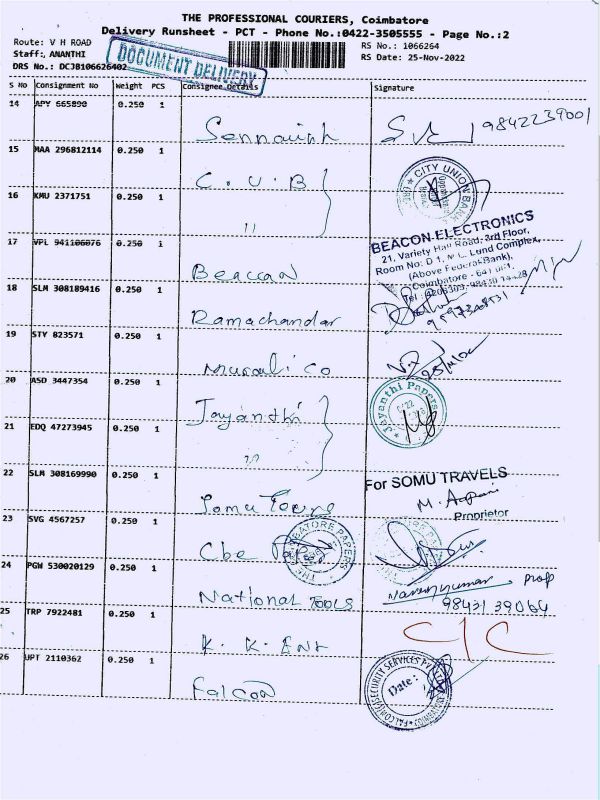 THE PROFESSIONAL COURIERS, Coimbatore
Delivery Runsheet - PCT - Phone No.:0422-3505555 - Page No.:2
Route: V H ROAD
RS No.: 1066264
Staff: ANANTHI
RS Date: 25-Nov-2022
DRS No.: DCJB106626402
DOCUMENT DELIVERY
S No Consignment No Weight PCS Consignee Details Signature
14 APY 665890 0.250 1
Sennaiah 9842239001
15 MAA 296812114 0.250 1
C.U.B CITY UNION BANK
16 KMU 2371751 0.250 1
"
BEACON ELECTRONICS
21, Variety Hall Road, 3rd Floor,
Room No: D 1, M.L. Lund Complex,
(Above Federal Bank),
Coimbatore - 641 001.
17 VPL 941106076 0.250 1
Beaccan
18 SLM 308189416 0.250 1
Ramachandar
19 STY 823571 0.250 1
Murali Co
20 ASD 3447354 0.250 1
Jayanthi Jayanthi Papers
21 EDQ 47273945 0.250 1
"
22 SLM 308169990 0.250 1
For SOMU TRAVELS
Somu Tours
Proprietor
23 SVG 4567257 0.250 1
Cbe Paper THE COIMBATORE PAPERS
24 PGM 530020129 0.250 1
Naveenkumar prop
National Tools 98431 39064
25 TRP 7922481 0.250 1
K. K. Ent C/C
26 UPT 2110362 0.250 1
Falcon FALCON SECURITY SERVICES PVT LTD
Date: